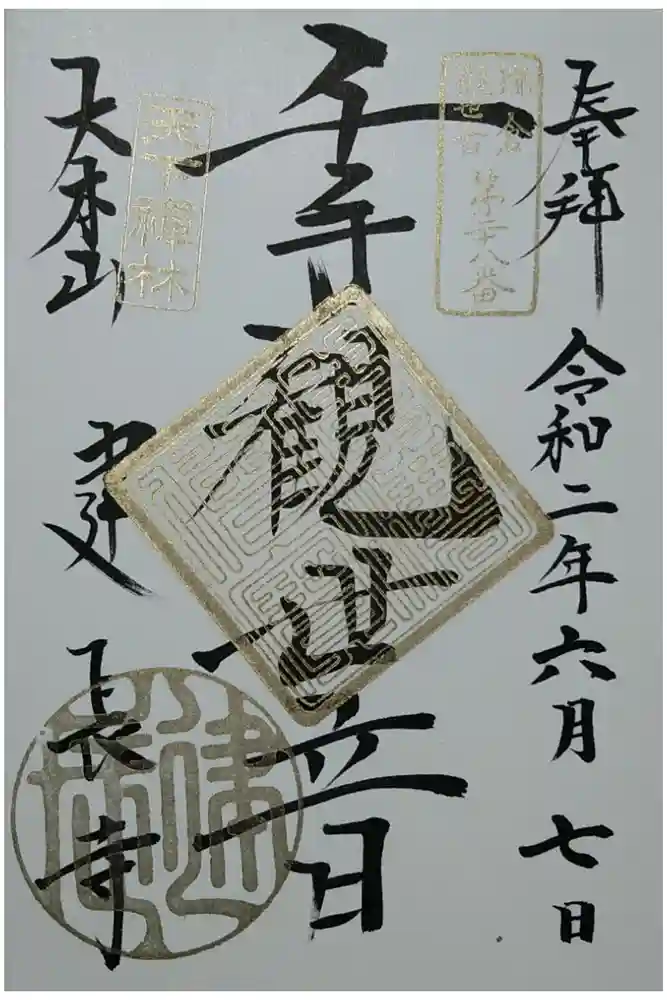 奉拝
令和二年六月七日
鎌倉
観世音
第二十八番
千手観世音
天下禅林
大本山
建長寺